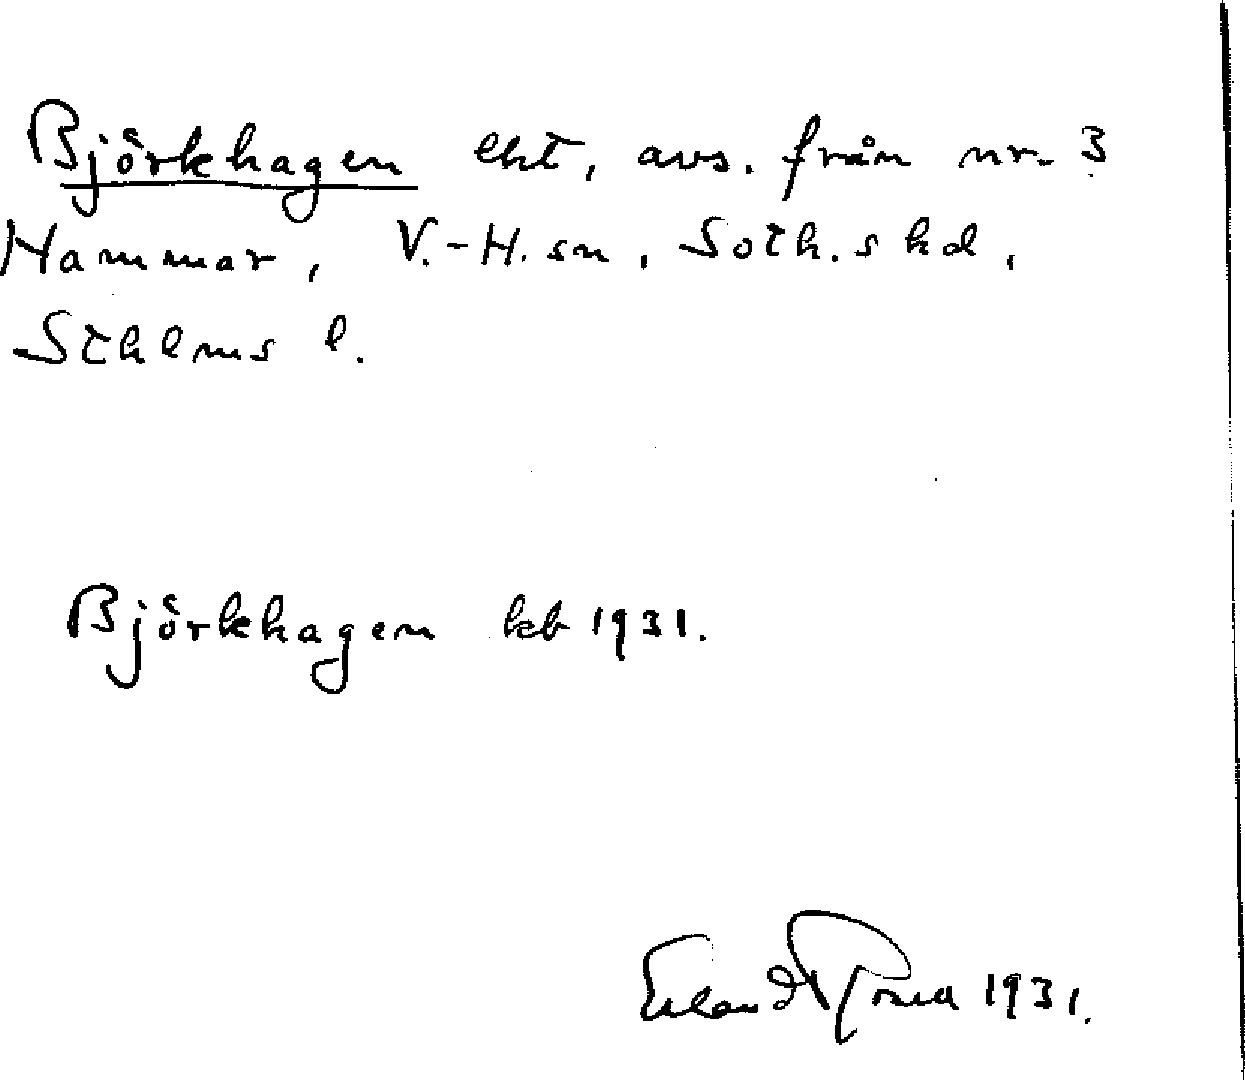 Björkhagen lht, avs. från nr. 3
Hammar, V.-H. sn, Soth.s hd,
Sthlms l.
Björkhagen kb 1931.
Erland 1931.